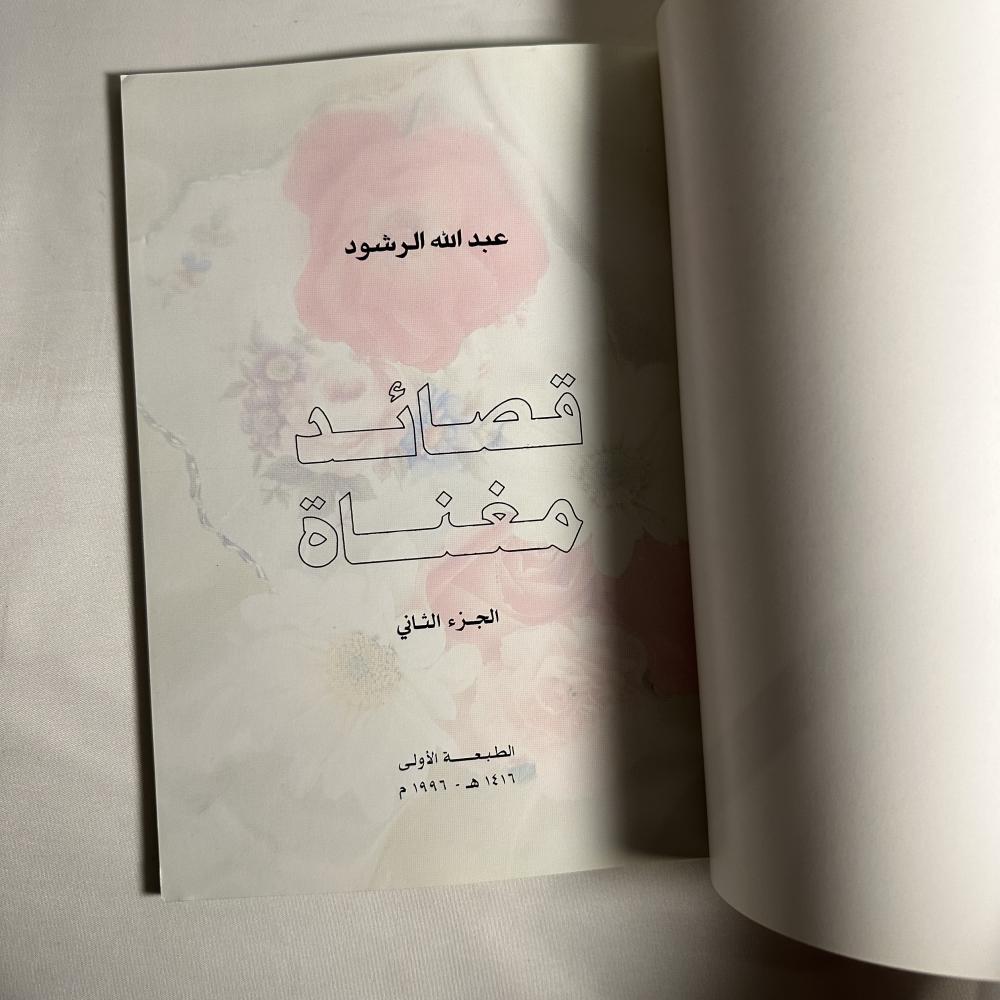 عبد الله الرشود
قصائد
مغناة
الجزء الثاني
الطبعـــة الأولى
١٤١٦ هـ - ١٩٩٦ م